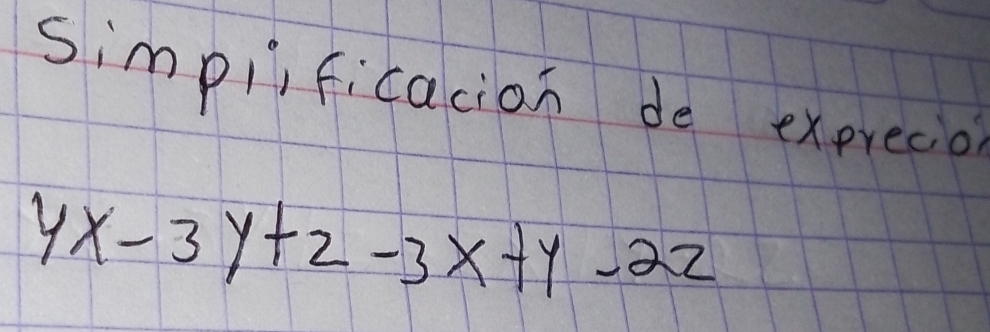 Simplificación de expreción
4x-3y+z-3x+y-2z